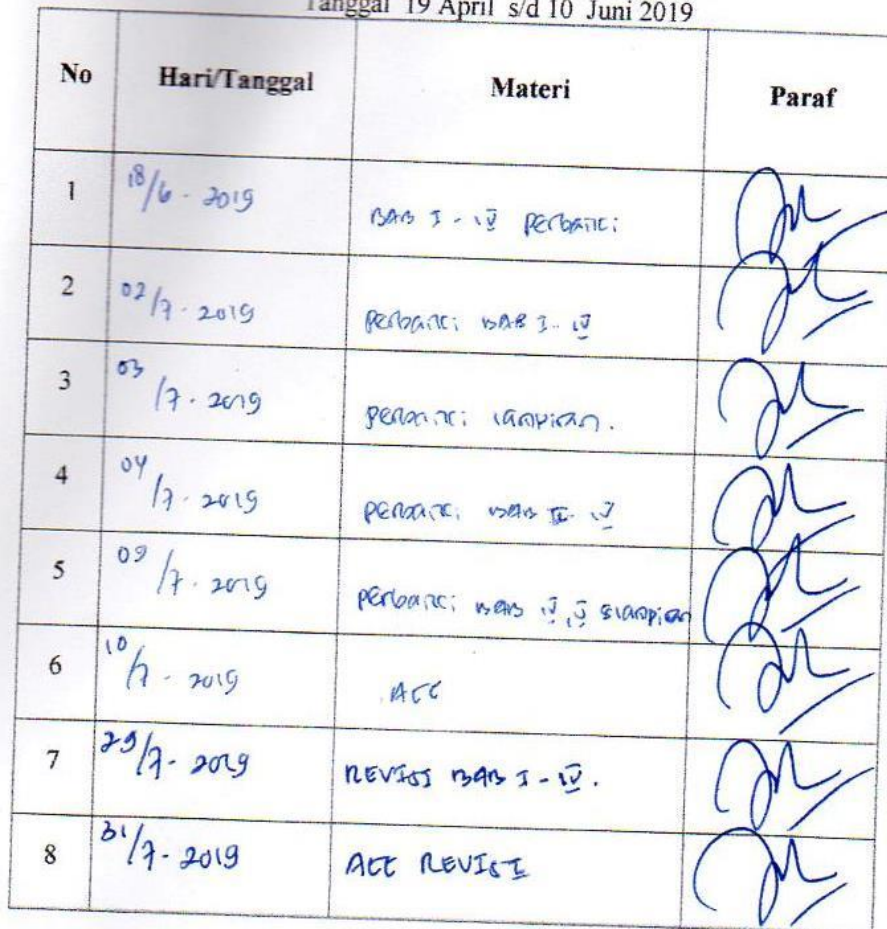 Tanggal 19 April s/d 10 Juni 2019
No Hari/Tanggal Materi Paraf
1 18/6 - 2019 BAB I - IV Perbaiki
2 02/7 - 2019 Perbaiki BAB I - IV
3 03/7 - 2019 Perbaiki lampiran.
4 04/7 - 2019 Perbaiki BAB II - IV
5 09/7 - 2019 Perbaiki BAB IV, V & lampiran
6 10/7 - 2019 ACC
7 29/7 - 2019 REVISI BAB I - IV.
8 31/7 - 2019 ACC REVISI